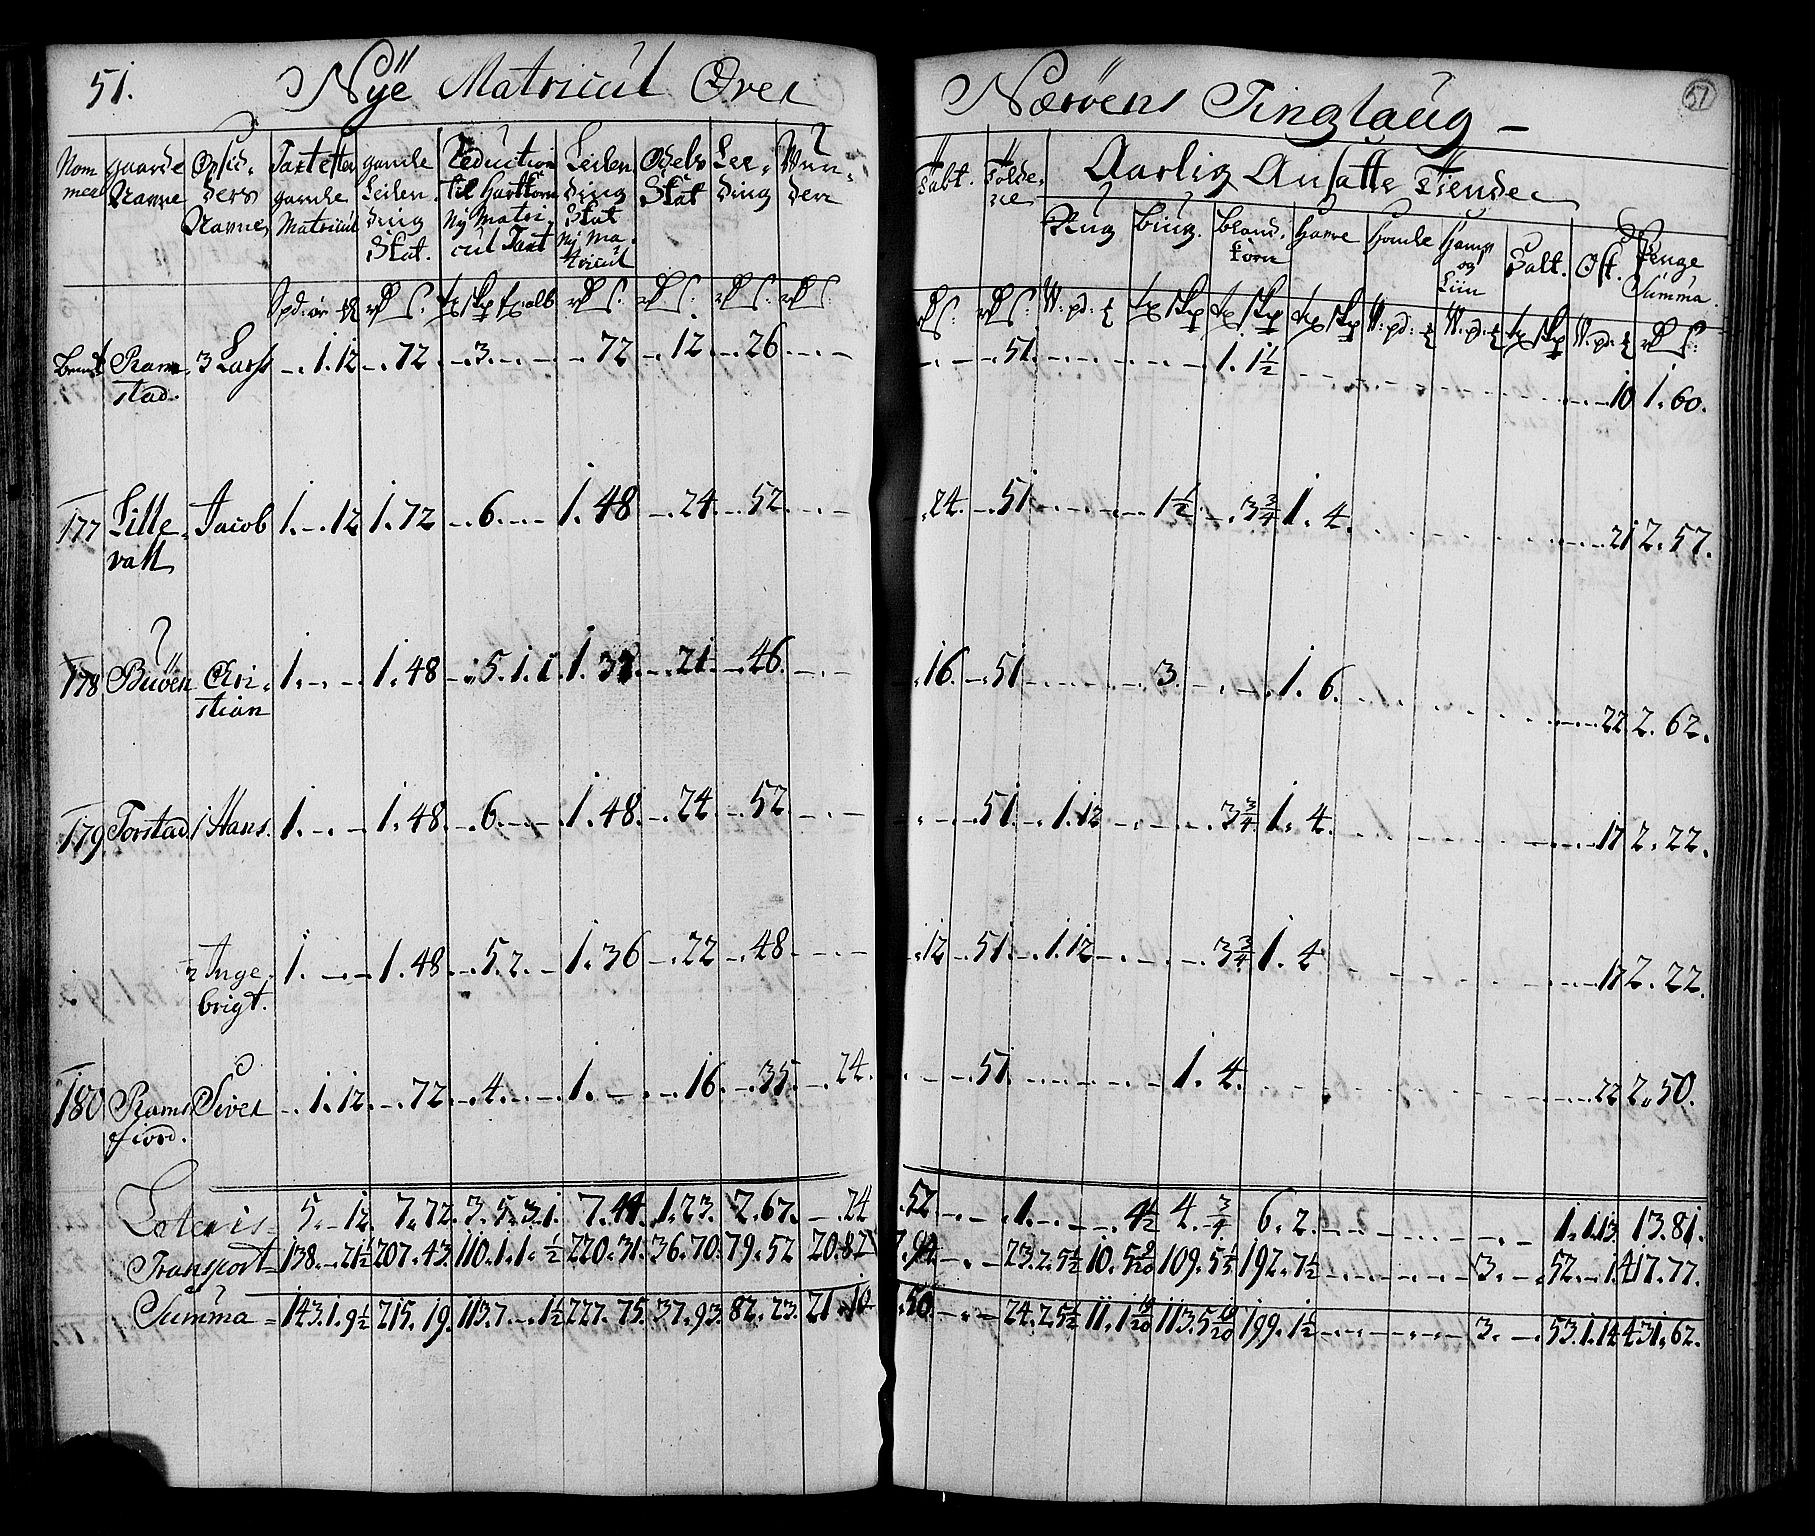 51. Nÿe Matricul Over Nærøens Tinglaug 51
Nom mer | gaarde Navne | Opsid- ders Navne | Taxt efter gamle Matricul | gamle Leilen- ding Skat. | Reduction til Hartkorn Nÿ Matri- cul Taxt | Leilen ding Skat Nÿ Ma- tricul | Odels Skat | Ler- ding | Aarlig Ansatte Tiende
Rug | Biug. | bland- korn | Havre | Homle | Hamp og Liin | Salt. | Ost. | Penge Summa.
Ram- stad. 3 Lars -.1.12 -.72 -.3.-.- -.72 -.12 -.26 -.-
-.- -.51. 1.1½ -.-10 1.60.
177 Lille- vatt Jacob 1.-.12 1.72 -.6.-.- 1.48 -.24 -.52 -.-
.24. -.51 1½ -.3¾ 1.4. -.-21 2.57.
178 Buöen Chri- stian 1.-.- 1.48 -.5.1.1 1. -.21. -.46. -.-
.16. -.51 3. 1.6. -.-22 2.62.
179 Torstad 1 Hans. 1.-.- 1.48. -.6.-.- 1.48. -.24 -.52. -.-
.-.- 51 -.1.12 -.3¾ 1.4. -.-17 2.22.
2 Inge- brigt. 1.-.- 1.48 -.5.2.- 1.36 -.22 -.48 -.-
.12 -.51 -.1.12 -.3¾ 1.4 -.-17 2.22.
180 Rams fiord. Siver -.1.12. -.72. -.4.-.- 1.-.- -.16. -.35. -.24.
-.- -.51 1.4. -.-22 2.50.
Lateris= 5.-.12. 7.72. 3.5.3.1. 7.44. 1.23. 2.67. -.24
.52 -.- 1.-.- -.4½ 4.¾ 6.2. 1.1.13. 13.81.
Transport= 138.-.21½ 207.43. 110.1.1.½ 220.31. 36.70. 79.52 20.82
-.- 23.2.5½ 10. 109. 192.7½ 3.-. 52.-.1. 417.77.
Summa= 143.1.9½ 215.19. 113.7.-.1½ 227.75. 37.93. 82.23. 21.10
.50 -.- 24.2.5½ 11. 113. 199.1½ 3.-. 53.1.14 431.62.